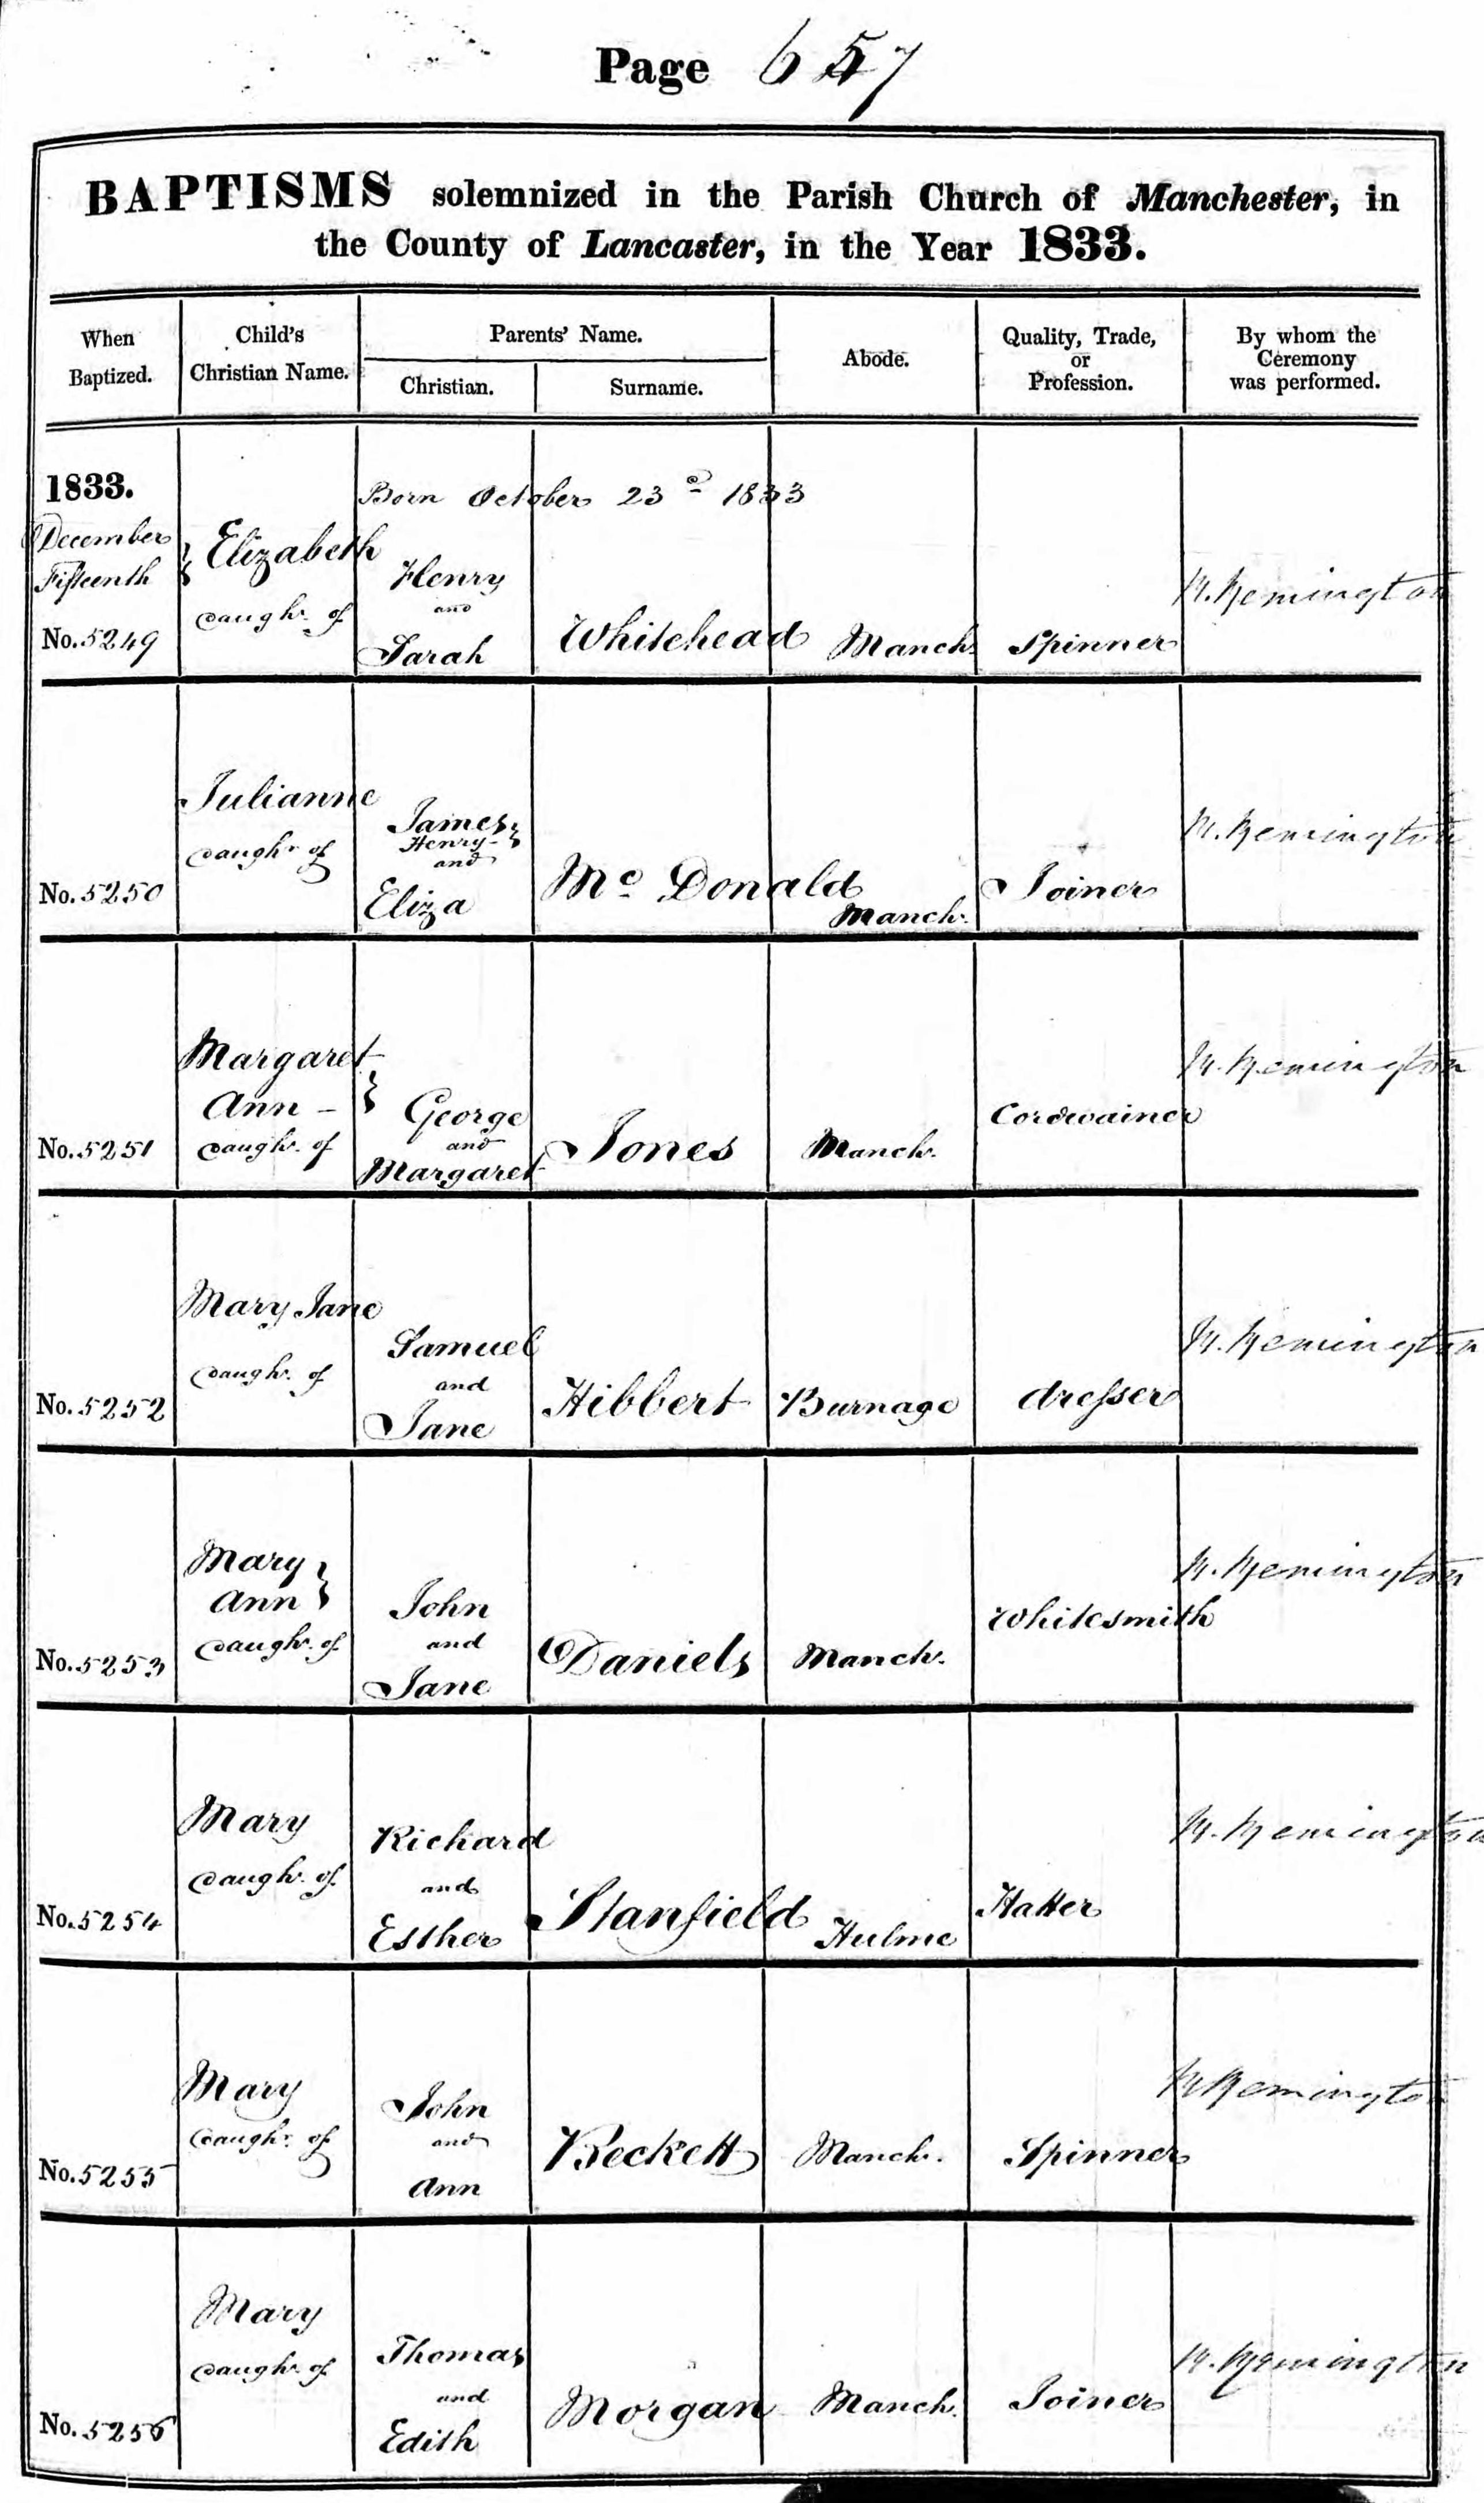 Page 657
BAPTISMS solemnized in the Parish Church of Manchester, in
the County of Lancaster, in the Year 1833.
When Baptized.
Child's Christian Name.
Parents' Name.
Christian.
Surname.
Abode.
Quality, Trade, or Profession.
By whom the Ceremony was performed.
1833.
Born October 23d 1833
December
Fifteenth
No. 5249
Elizabeth
Daughr. of
Henry
and
Sarah
Whitehead
Manchr.
Spinner
Remington
No. 5250
Julianne
Daughr of
James
Henry
and
Eliza
Mc Donald
Manchr.
Joiner
Remington
No. 5251
Margaret
Ann
Daughr. of
George
and
Margaret
Jones
Manchr.
Cordwainer
Remington
No. 5252
Mary Jane
Daughr. of
Samuel
and
Jane
Hibbert
Burnage
dresser
Remington
No. 5253
Mary
Ann
Daughr. of
John
and
Jane
Daniels
Manchr.
Whitesmith
Remington
No. 5254
Mary
Daughr. of
Richard
and
Esther
Stanfield
Hulme
Hatter
Remington
No. 5255
Mary
Daughr. of
John
and
Ann
Beckett
Manchr.
Spinner
Remington
No. 5256
Mary
Daughr. of
Thomas
and
Edith
Morgan
Manchr.
Joiner
Remington